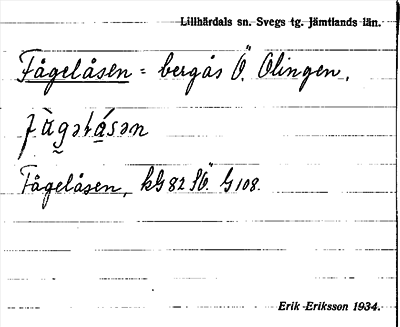 Lillhärdals sn. Svegs tg. Jämtlands län.
Fågelåsen = bergås Ö. Olingen.
Fågelåsen, kG 82 SÖ G 108.
Erik Eriksson 1934.